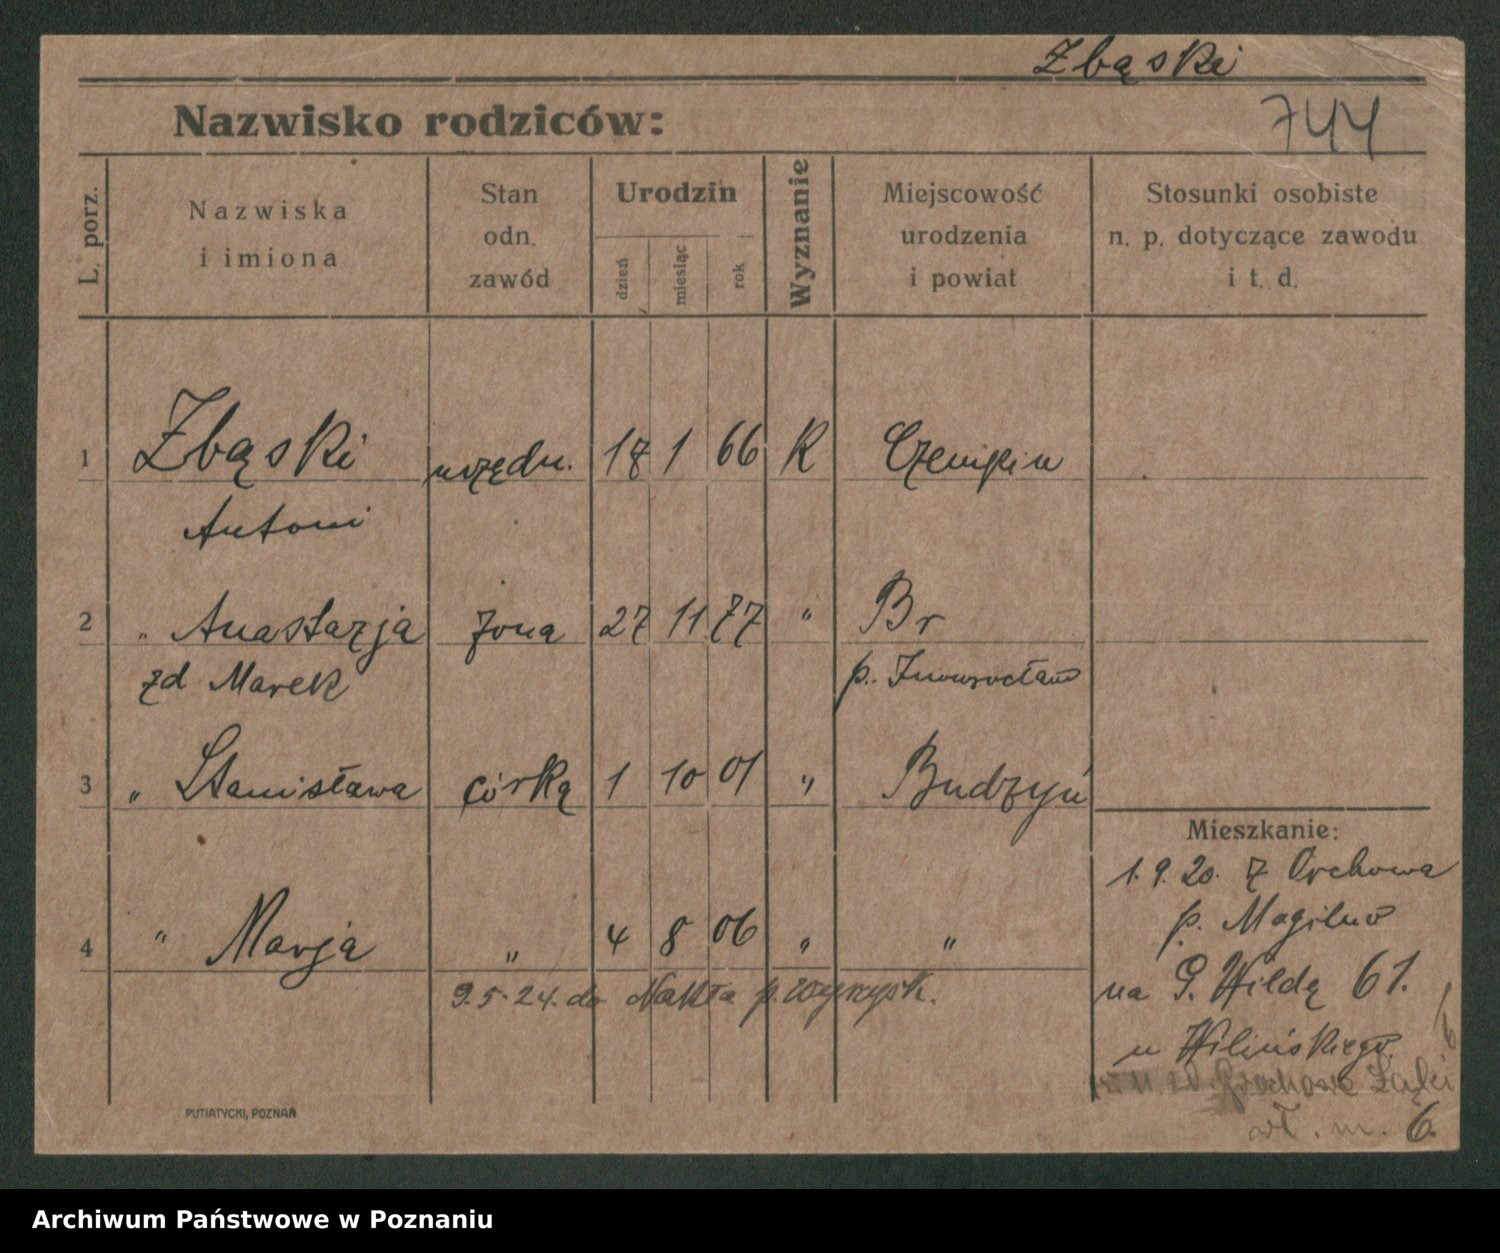 Zbąski
Nazwisko rodziców: 744
L. porz.
Nazwiska
i imiona
Stan
odn.
zawód
Urodzin
dzień
miesiąc
rok
Wyznanie
Miejscowość
urodzenia
i powiat
Stosunki osobiste
n. p. dotyczące zawodu
i t. d.
1 Zbąski urzędn. 18 1 66 K Czempin
Antoni
2 " Anastazja żona 27 11 77 " Br
zd Marek p. Inowrocław
3 " Stanisława córka 1 10 01 " Budzyń
Mieszkanie:
1.9.20. z Orchowa
p. Mogilno
4 " Marja " 4 8 06 " "
na G. Wildę 61.
9.5.24. do Nakła p. Wyrzysk.
u Wilińskiego.
Grochowe Łąki 6
wł. m. 6.
PUTIATYCKI, POZNAŃ
Archiwum Państwowe w Poznaniu